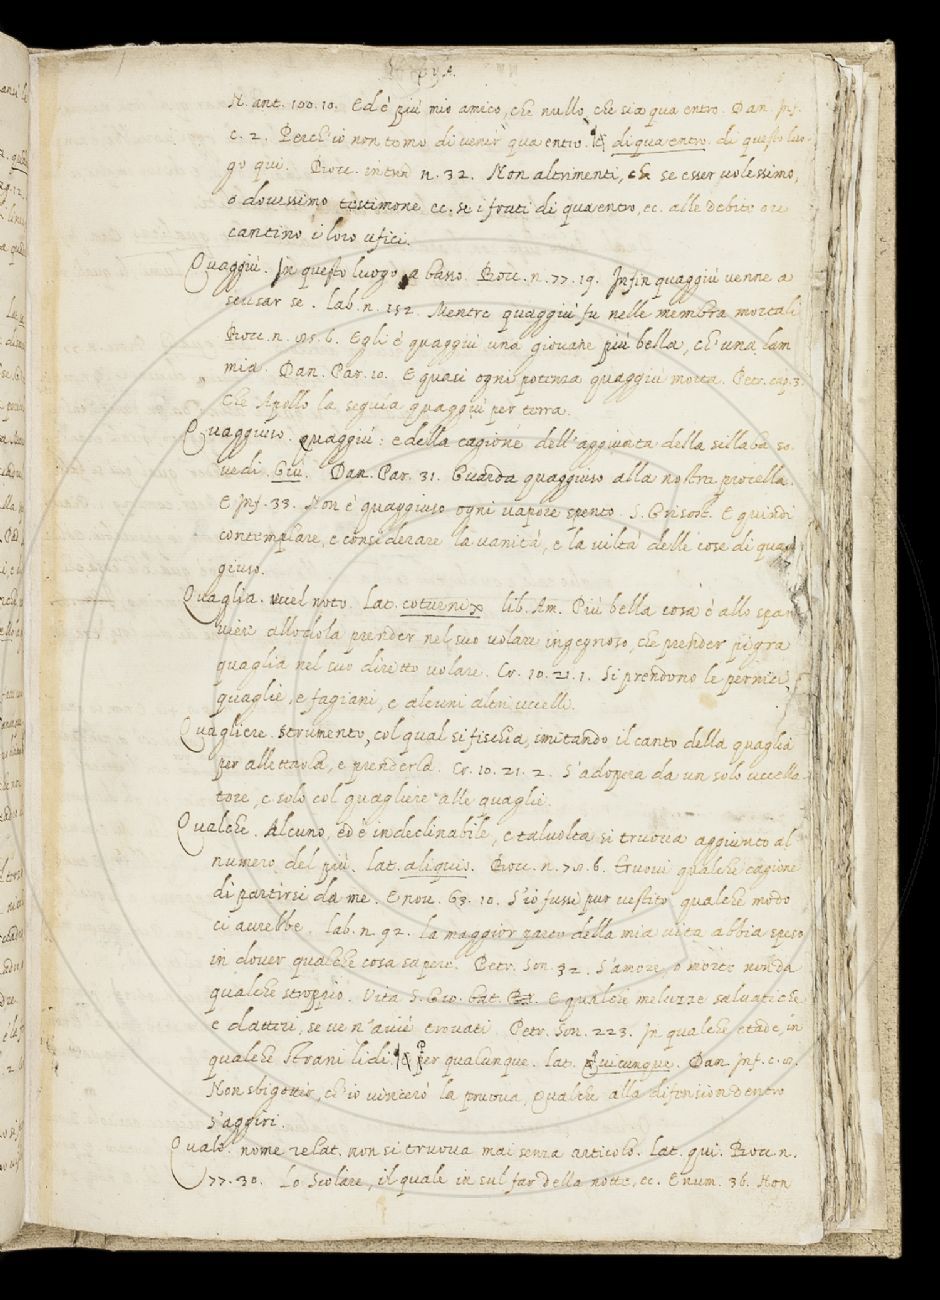 QVA.
N. ant. 100. 10. Ed è più mio amico, che nullo, che sia qua entro. Dan. Inf.
c. 2. Perch'io non temo di venir qua entro. di qua entro. di questo luo-
go qui. Bocc. introd n. 32. Non altrimenti, che se esser volessimo,
ò dovessimo testimone ec. se i frati di qua entro, ec. alle debite ore
cantino i loro ufici.
Quaggiù. In questo luogo a basso. Bocc. n. 77. 19. Infin quaggiù venne a
scusar se. Lab. n. 152. Mentre quaggiù fu nelle membra mortali
Bocc. n. 6. Egli è quaggiù una giovane più bella, ch'una lam
mia. Dan. Par. 10. E quasi ogni potenza quaggiù morta. Petr. cap. 3.
Che Apollo la seguia quaggiù per terra.
Quaggiuso. quaggiù: e della cagione dell'aggiunta della sillaba so.
vedi. Giù. Dan. Par. 31. Guarda quaggiuso alla nostra procella.
E Inf. 33. Non è quaggiuso ogni vapore spento. S. Grisost. E quindi
contemplare, e considerare la vanità, e la viltà delle cose di quag
giuso.
Quaglia. uccel noto. Lat. coturnix lib. Am. Più bella cosa è allo spar
viere allodola prender nel suo volare ingegnoso, che prender pigra
quaglia nel suo diritto volare. Cr. 10. 21. 1. Si prendono le pernici
quaglie, e fagiani, e alcuni altri uccelli.
Quagliere. strumento, col qual si fischia, imitando il canto della quaglia
per allettarla, e prenderla. Cr. 10. 21. 2. S'adopera da un solo uccella
tore, e solo col quagliere alle quaglie.
Qualche. Alcuno, ed è indeclinabile, e talvolta si truova aggiunto al
numero del più. Lat. aliquis. Bocc. n. 6. truovi qualche cagione
di partirsi da me. E nov. 63. 10. S'io fussi pur vestito, qualche modo
ci aurebbe. Lab. n. 92. la maggior parte della mia vita abbia speso
in dover qualche cosa sapere. Petr. Son. 32. S'amore, o morte non da
qualche stroppio. Vita S. Gio. bat. E qualche meluzze salvatiche
e datteri, se ve n'avie trovati. Petr. Son. 223. In qualche etade, in
qualche strani lidi. per qualunque. Lat. quicunque. Dan. Inf. c.
Non sbigottir, ch'io vincerò la pruova, Qualche alla difension dentro
s'aggiri.
Quale. nome relat. non si truova mai senza articolo. Lat. qui. Bocc. n.
77. 30. Lo Scolare, il quale in sul far della notte, ec. E num. 36. Non